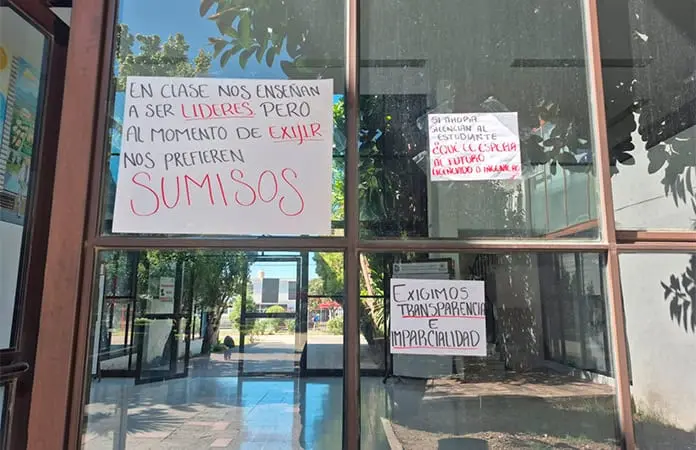 EN CLASE NOS ENSEÑAN
A SER LIDERES PERO
AL MOMENTO DE EXIJIR
NOS PREFIEREN
SUMISOS
SI AHORA
SILENCIAN AL
ESTUDIANTE
¿QUÉ LE ESPERA
AL FUTURO
LICENCIADO O INGENIERO
EXIGIMOS
TRANSPARENCIA
E
IMPARCIALIDAD